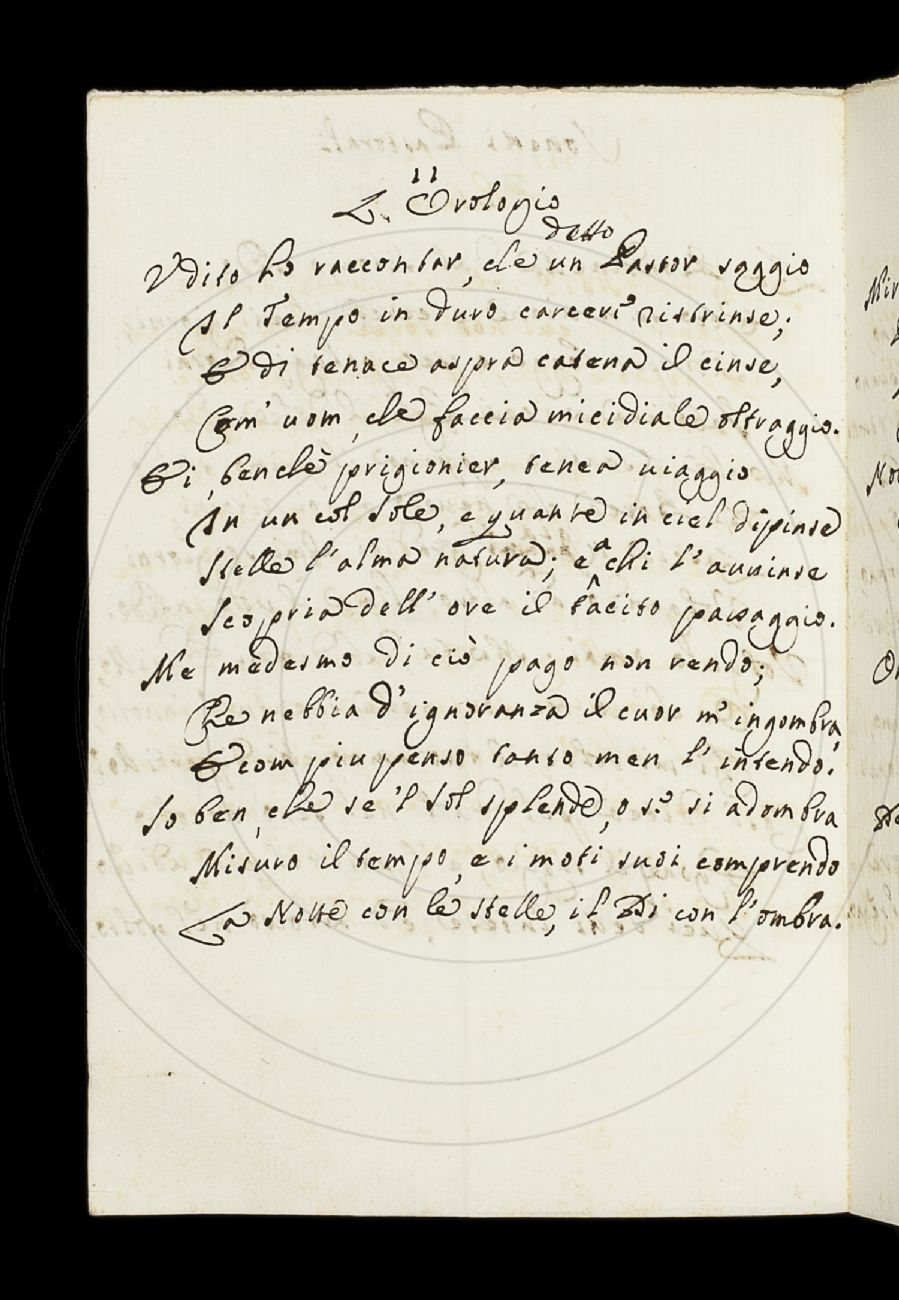 11
L'Orologio
detto
Udito ho raccontar, che un Pastor saggio
Il Tempo in duro carcer ristrinse;
E di tenace aspra catena il cinse,
Com' uom, che faccia micidiale oltraggio.
Ei, benchè prigionier, tenea viaggio
In un col Sole, e quante in ciel dipinse
Stelle l'alma natura; e a chi l' avvinse
Scopria dell' ore il tacito passaggio.
Me medesmo di ciò pago non rendo;
Che nebbia d' ignoranza il cuor m' ingombra,
E com piu penso tanto men l' intendo.
So ben, che se 'l Sol splende, o se si adombra
Misuro il tempo, e i moti suoi comprendo
La Notte con le stelle, il Di con l'ombra.